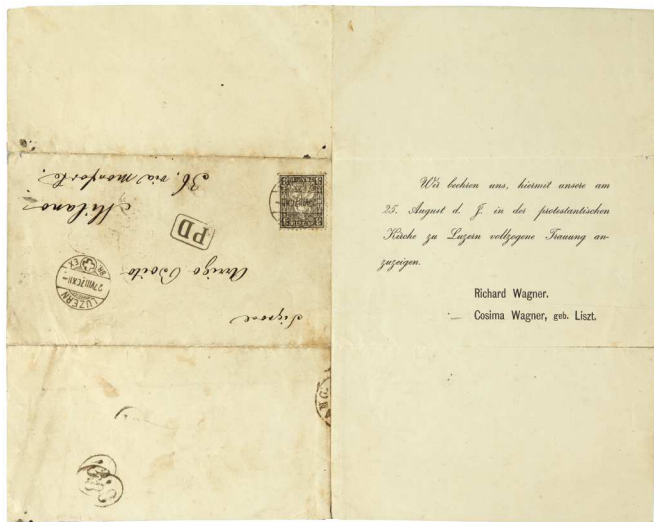 Signore
Arrigo Boito
PD
LUZERN
27 VIII 70 XII-
BR. EX.
Milano
36, via monforte.
Wir beehren uns, hiermit unsere am
25. August d. J. in der protestantischen
Kirche zu Luzern vollzogene Trauung an-
zuzeigen.
Richard Wagner.
Cosima Wagner, geb. Liszt.